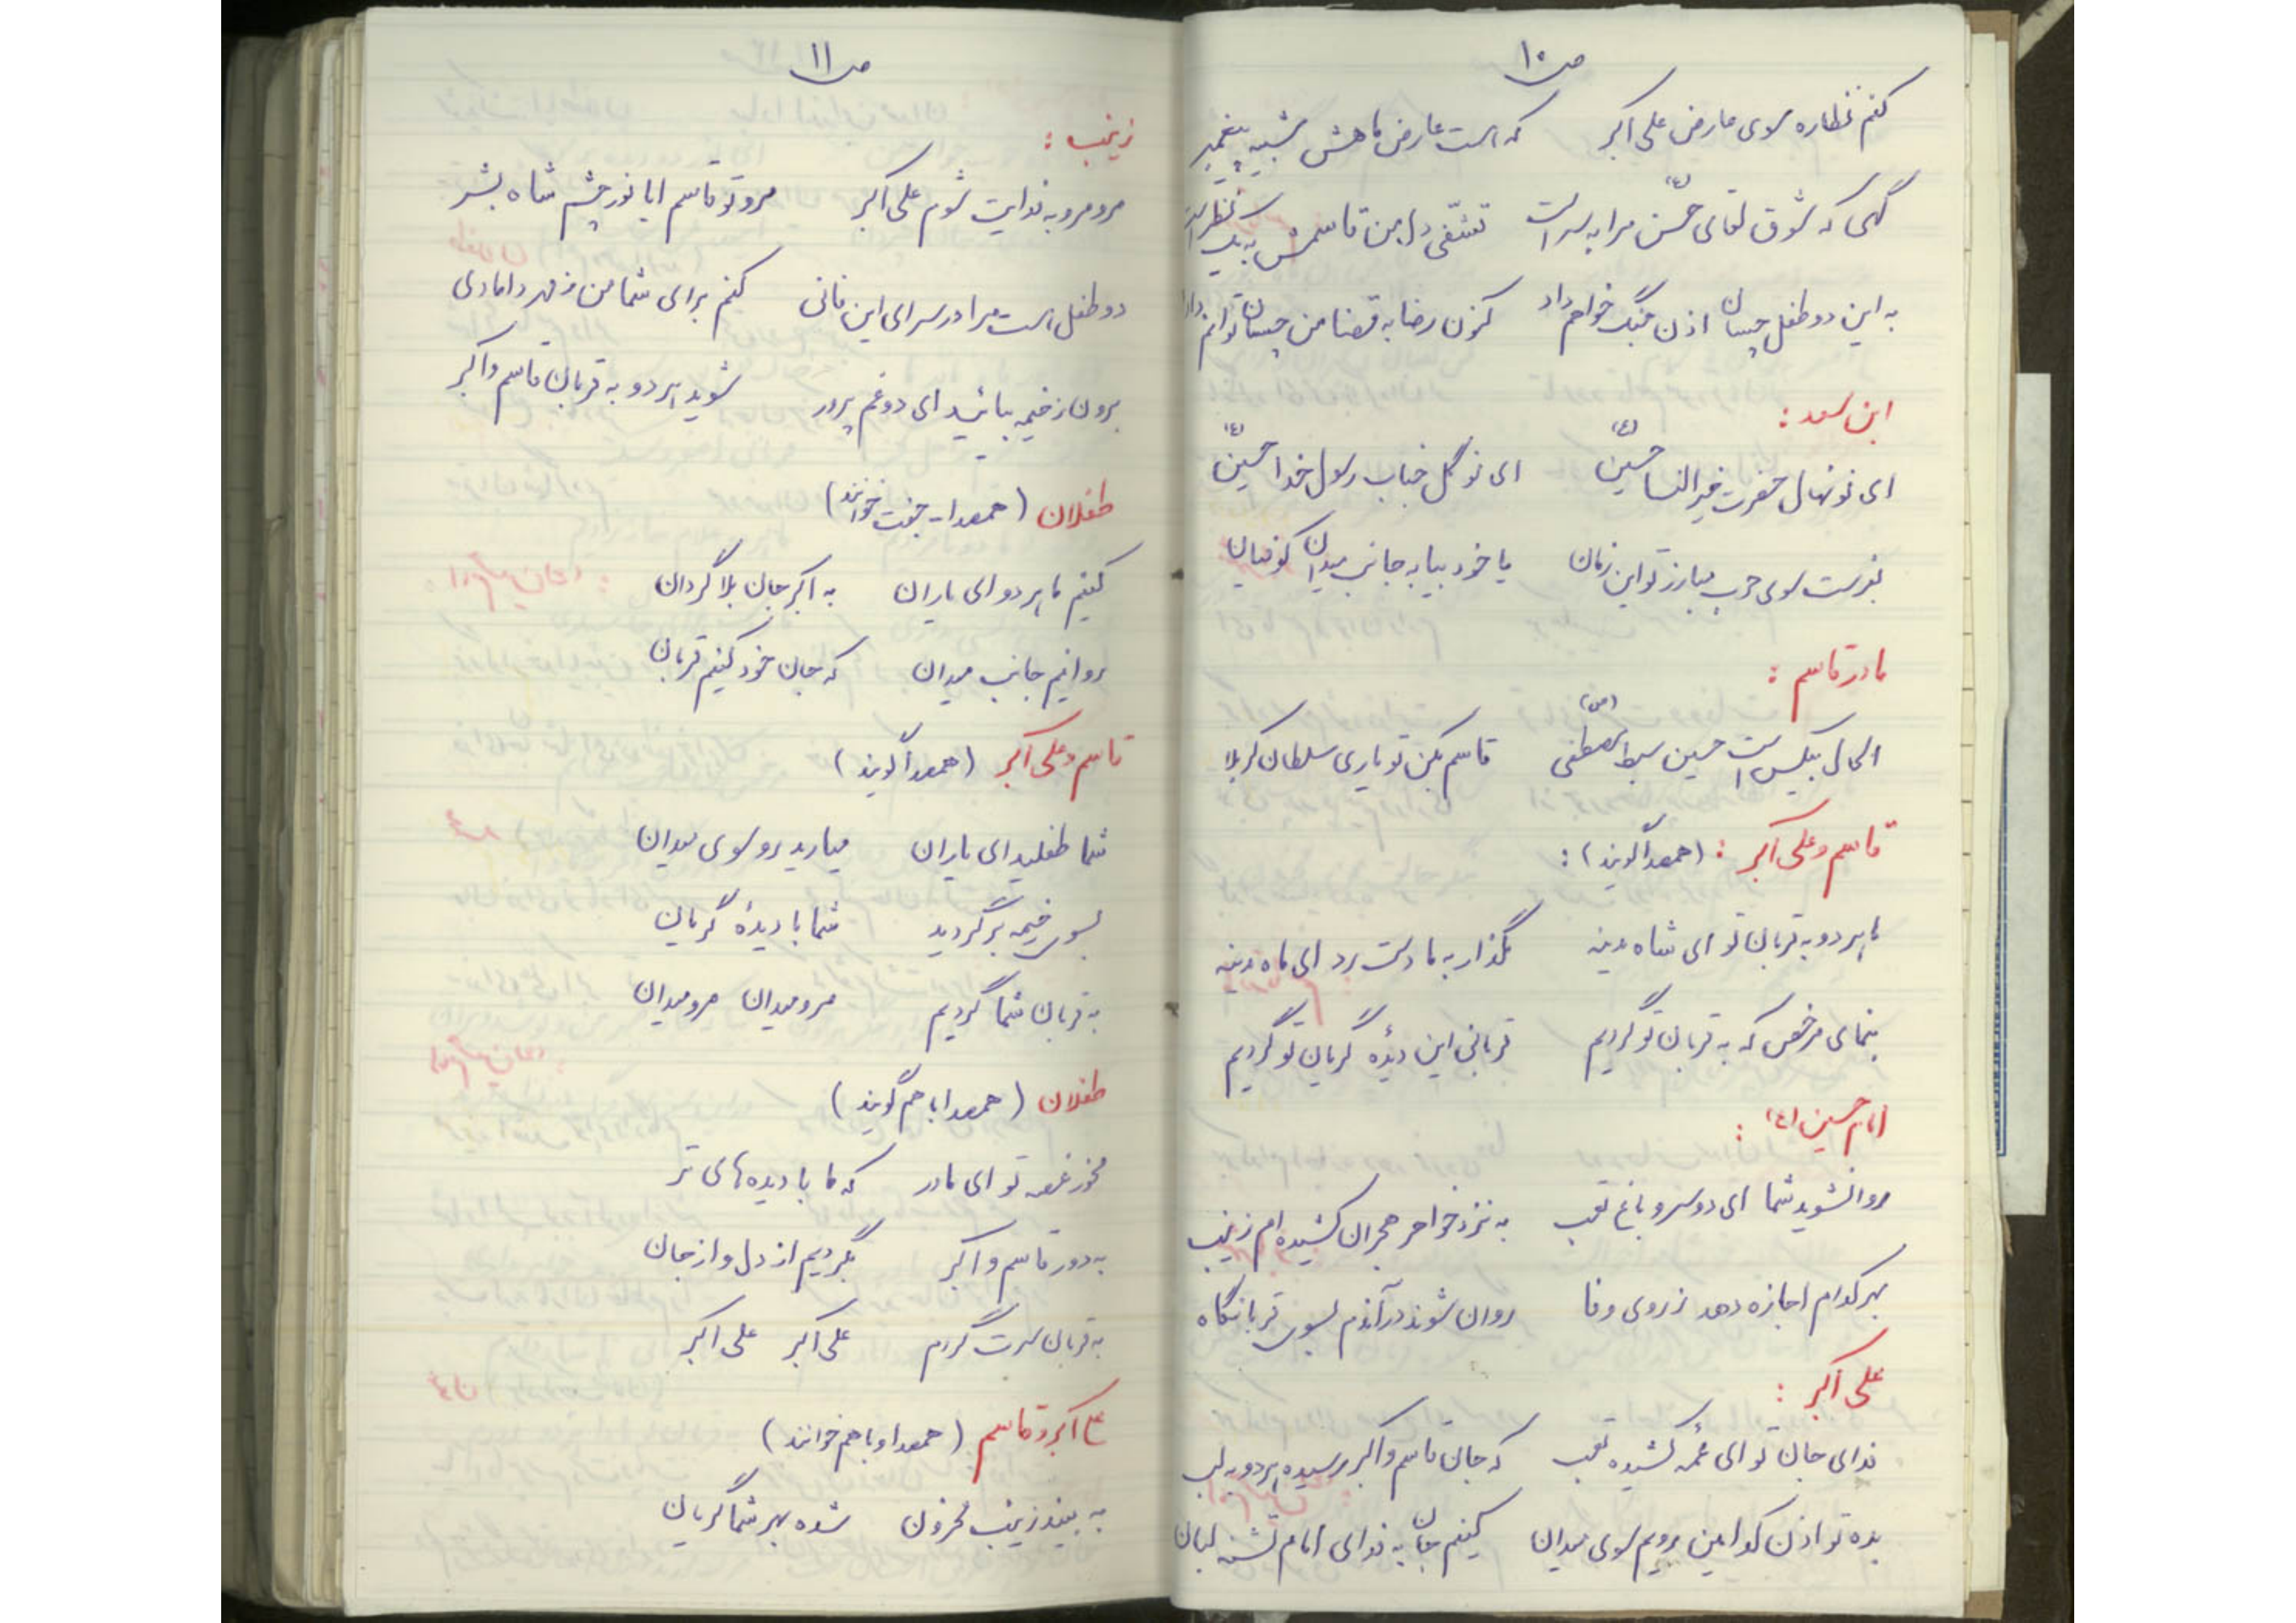 ص ۱۰
کنم نظاره سوی عارض علی اکبر که هست عارض ماهش شبیه پیغمبر
گهی که شوق لقای حسن (ع) مرا به سر است تشفّی دل من قاسمش به یک نظر است
به این دو طفل چسان اذن جنگ خواهم داد کنون رضا به قضا من چسان توانم داد
ابن سعد :
ای نو نهال حضرت خیرالنسا حسین (ع) ای نوگل جناب رسول خدا حسین (ع)
بفرست سوی حرب مبارز تو این زمان یا خود بیا به جانب میدان کوفیان
مادر قاسم :
الحال بیکس است حسین سبط مصطفی (ص) قاسم بکن تو یاری سلطان کربلا
قاسم و علی اکبر : (همصدا گویند) :
ما هر دو به قربان تو ای شاه مدینه مگذار به ما دست رد ای ماه مدینه
بنمای مرخص که به قربان تو گردیم قربانی این دیدهٔ گریان تو گردیم
امام حسین (ع) :
روانشوید شما ای دو سرو باغ تعب به نزد خواهر هجران کشیده ام زینب
بهر کدام اجازه دهد ز روی وفا روان شوند در آندم بسوی قربانگاه
علی اکبر :
فدای جان تو ای عمّه کشیده تعب که جان قاسم و اکبر رسیده هر دو به لب
بده تو اذن کدامین رویم سوی میدان کنیم جان به فدای امام تشنه لبان
ص ۱۱
زینب :
مرو مرو به فدایت شوم علی اکبر مرو تو قاسم ایا نور چشم شاه بشر
دو طفل هست مرا در سرای این فانی کنم برای شما من ز مهر دامادی
برون ز خیمه بیائید ای دو غم پرور شوید هر دو به قربان قاسم و اکبر
طفلان (همصدا - جفت خوانند)
کنیم ما هر دو ای یاران به اکبر جان بلا گردان
روانیم جانب میدان که جان خود کنیم قربان
قاسم و علی اکبر (همصدا گویند)
شما طفلید ای یاران میارید رو سوی میدان
بسوی خیمه برگردید شما با دیدهٔ گریان
به قربان شما گردیم مرو میدان مرو میدان
طفلان (همصدا با هم گویند)
مخور غصه تو ای مادر که ما با دیده های تر
به دور قاسم و اکبر بگردیم از دل و از جان
به قربان سرت گردم علی اکبر علی اکبر
ع اکبر و قاسم (همصدا و با هم خوانند)
به بینید زینب محزون شده بهر شما گریان